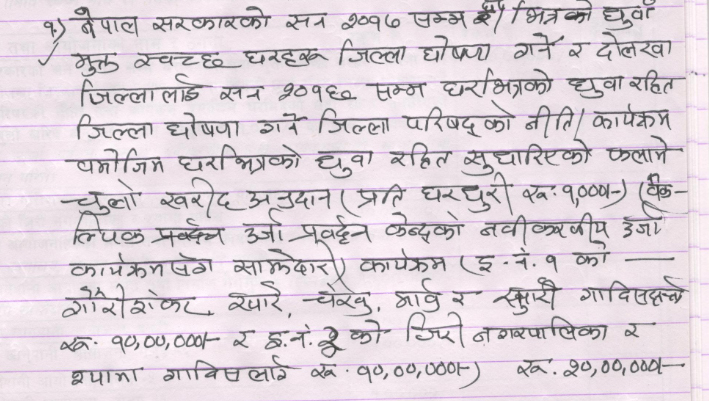 १) नेपाल सरकारको सन २०१७ सम्म भित्रको धुवाँ
मुक्त स्वच्छ घरहरू जिल्ला घोषणा गर्ने र दोलखा
जिल्लालाई सन २०१६ सम्म घरभित्रको धुवा रहित
जिल्ला घोषणा गर्ने जिल्ला परिषदको नीति/कार्यक्रम
बमोजिम घरभित्रको धुवा रहित सुधारिएको फलामे
चुलो खरीद अनुदान (प्रति घरधुरी रू. १,०००।-) (वैक-
ल्पिक उर्जा प्रवर्द्धन केन्द्रको नवीकरणीय उर्जा
कार्यक्रमसंग साझेदारी) कार्यक्रम (इ.नं. १ को
गौरीशंकर, च्यारे, मार्बु र गाविसहरूको
रू. १०,००,०००।- र इ.नं. २ को जिरी नगरपालिका र
श्यामा गाविसलाई रू. १०,००,०००।-) रू. २०,००,०००।-